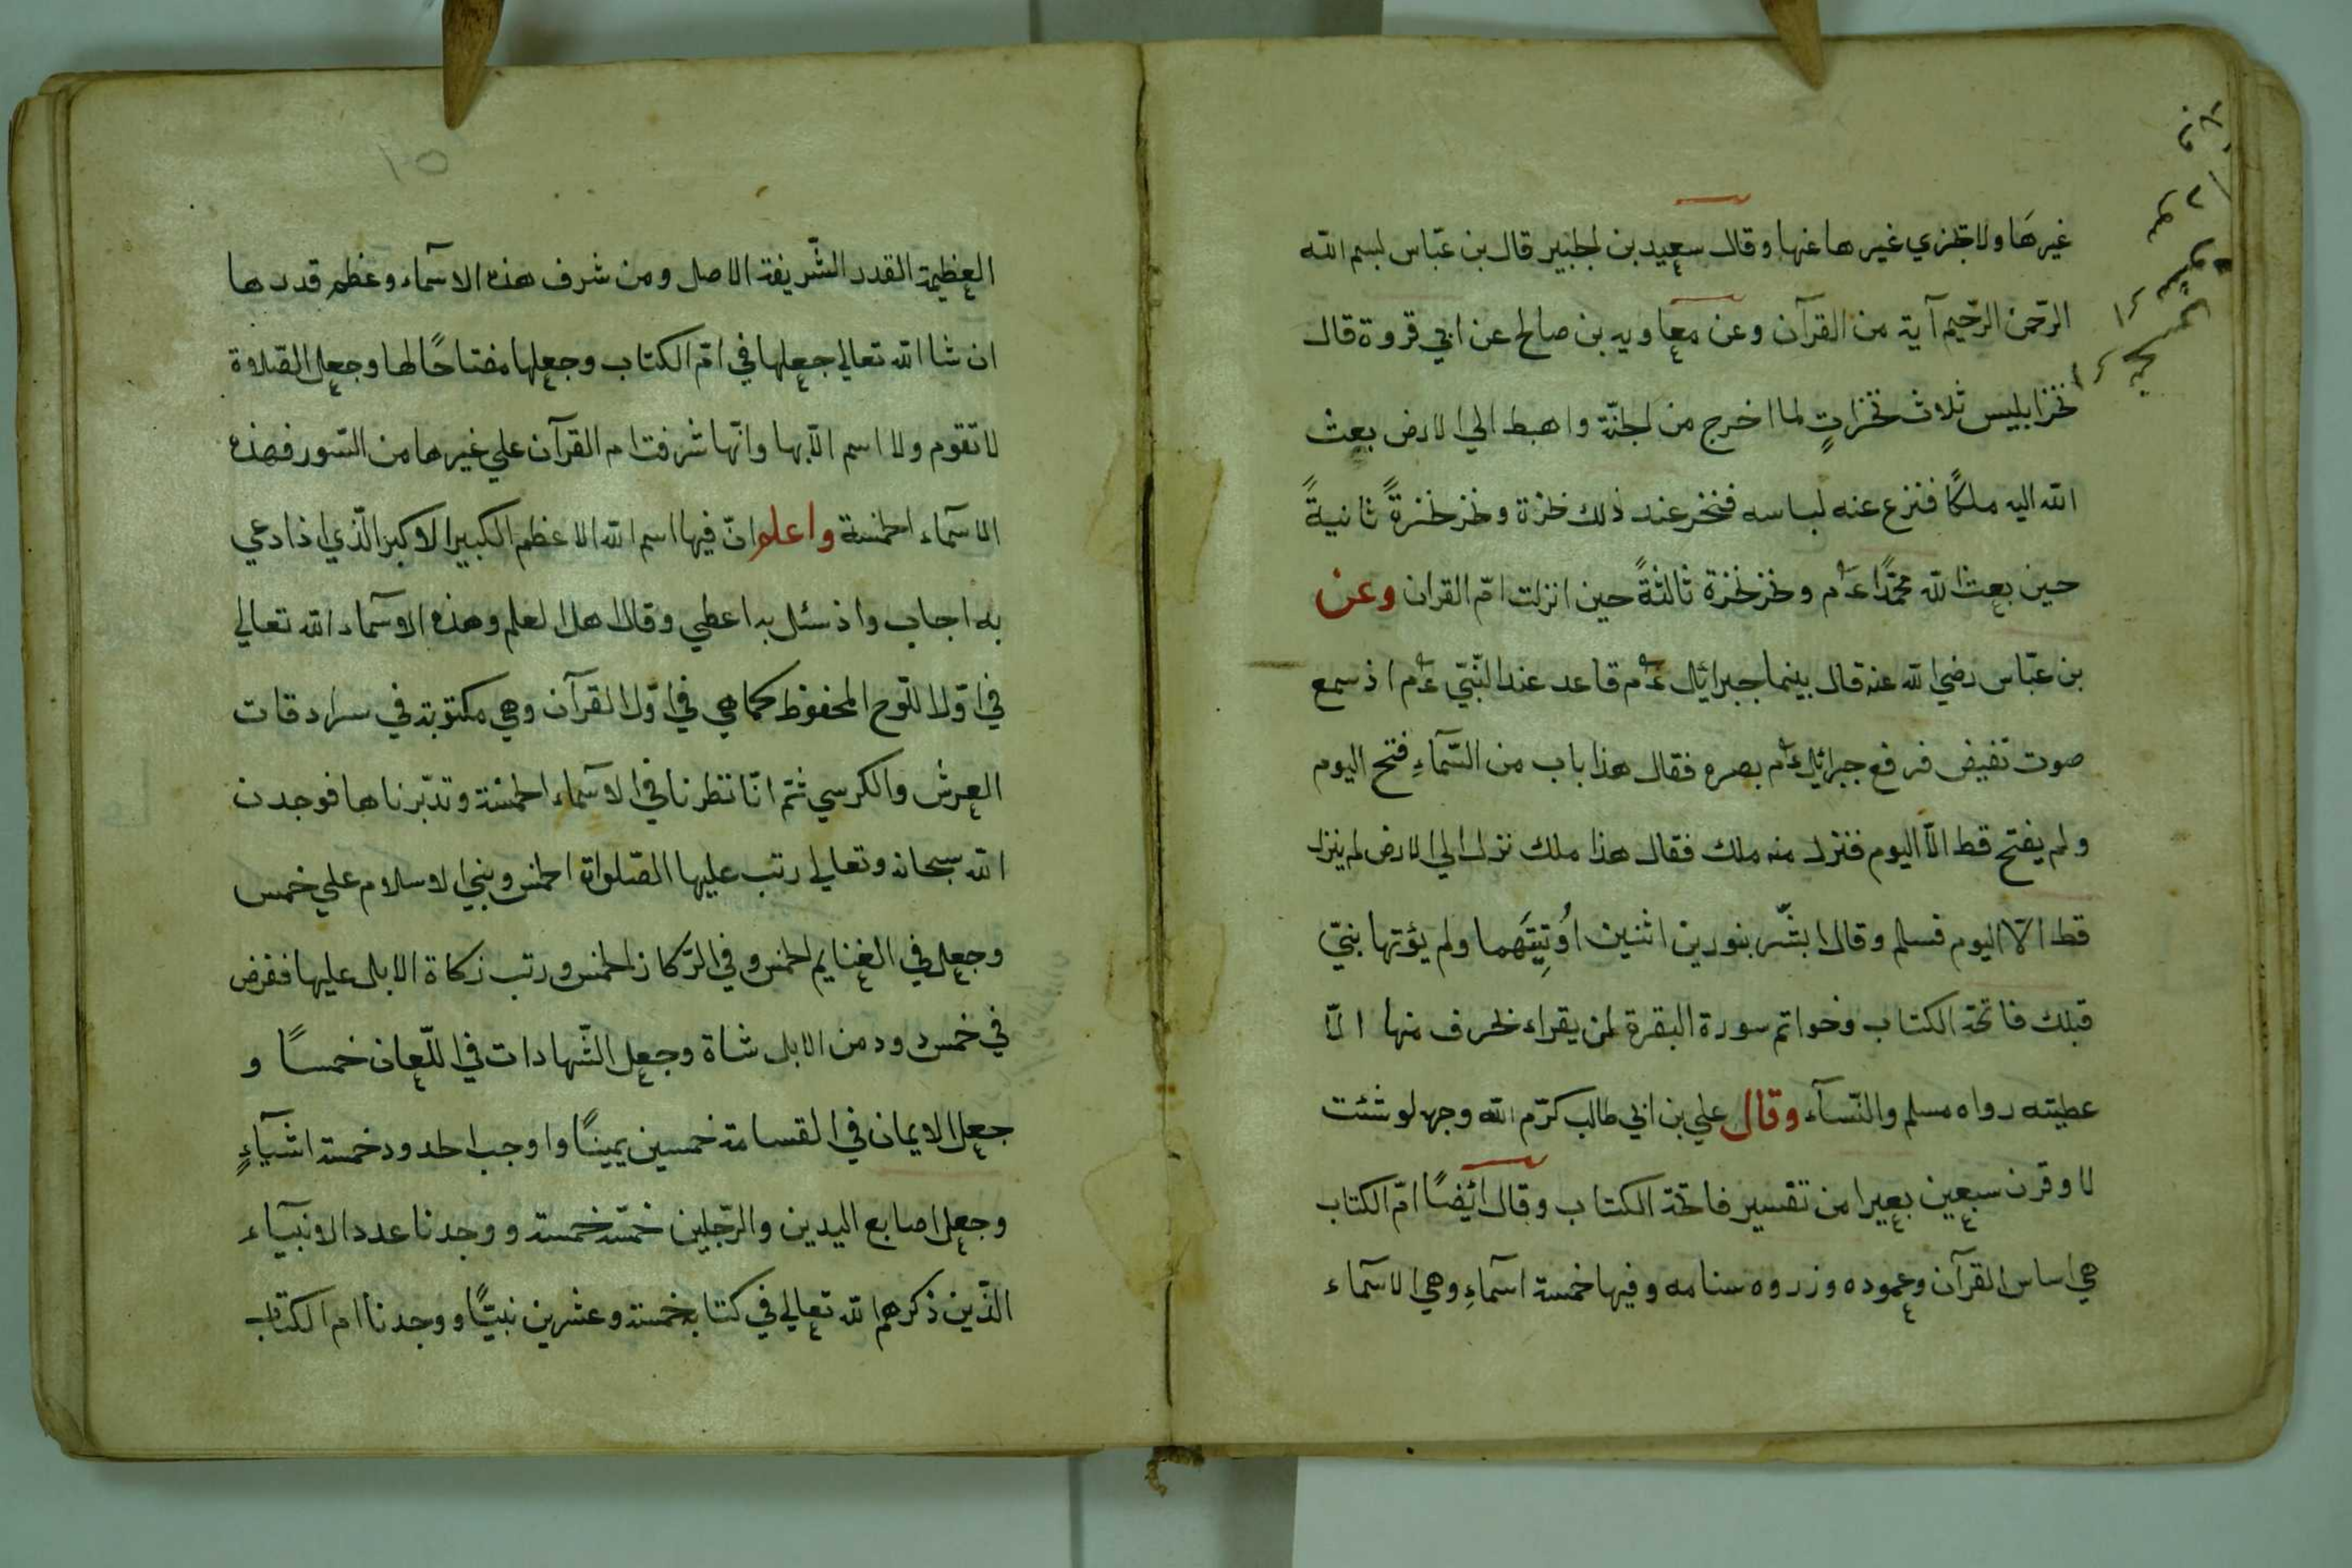 غيرهَا ولا تجزي غيرها عنها وقال سعيد بن لجبير قال بن عبّاس لبسم الله
الرّحمن الرّحيم آية من القرآن وعن معاويه بن صالح عن ابي قروة قال
نخز ابليس ثلاث نخزاتٍ لما اخرج من لجنّة واهبط الي الارض بعث
الله اليه ملكًا فنزع عنه لباسه فنخر عند ذلك نخزة ونخز نخزةً ثانيةً
حين بعث الله محمّدًا ءم ونخز نخزة ثالثةً حين انزلت امّ القران وعن
بن عبّاس رضي الله عنه قال بينما جبرائيل ءم قاعد عند النّبيّ ءم اذ سمع
صوت نفيض فرفع جبرائيل ءم بصره فقال هذا باب من السّمآءِ فتح اليوم
ولم يفتح قط الاّ اليوم فنزل منه ملك فقال هذا ملك نزل الي الارض لم ينزل
قط الاّ اليوم فسلم وقال ابشّر بنورين اثنين اُوتِيتَهما ولم يؤتها بنيّ
قبلك فاتحة الكتاب وخواتم سورة البقرة لمن يقراء بحرف منها الاّ
عطيته رواه مسلم والنّسآء وقال علي بن ابي طالب كرّم الله وجهه لو شئت
لاوقرن سبعين بعيرا من تفسير فاتحة الكتاب وقال ائيضًا امّ الكتاب
هي اساس القرآن وعموده وزروه سنامه وفيها خمسة اسمآءِ وهي الاسمآء
١٥
العظيمة القدر الشّريفة الاصل ومن شرف هذه الاسمآء وعظم قدرها
ان شا الله تعالي جعلها في امّ الكتاب وجعلها مفتاحًا لها وجعل الصّلاوة
لا تقوم ولا اسم الاّ بها وانّها شرفت ام القرآن علي غيرها من السّور فهذه
الاسمآء الخمسة واعلم انّ فيها اسم الله الاعظم الكبير الاكبر الّذي اذا دعي
به اجاب واذ سئل به اعطي وقال اهل العلم وهذه الاسمآء الله تعالي
في اوّل اللّوح المحفوظ كما هي في اوّل القرآن وهي مكتوبة في سرادقات
العرش والكرسي ثمّ انّا نظرنا في الاسمآء الخمسة وتدبّرناها فوجدن
الله سبحانه وتعالي رتب عليها الصّلواة الخمس وبني الاسلام علي خمس
وجعل في الغنايم الخمس وفي الرّكاز الخمس ورتب زكاة الابل عليها ففرض
في خمس دود من الابل شاة وجعل الشّهادات في اللّعان خمسًا و
جعل الايمان في القسامة خمسين يمينًا واوجب الحدود خمسة اشيآءٍ
وجعل اصابع اليدين والرّجلين خمسة خمسة ووجدنا عدد الانبيآء
الذّين ذكرهم الله تعالي في كتابه خمسة وعشرين نبيًّا ووجدنا ام الكتاب